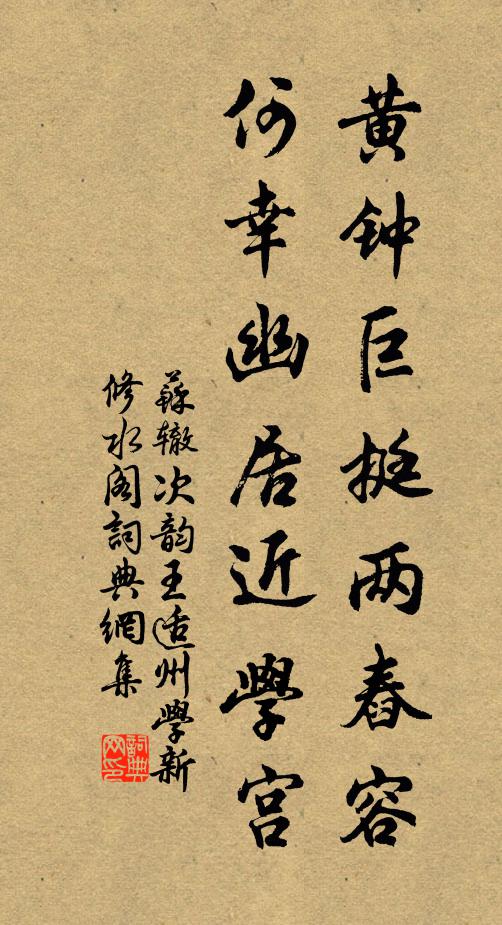 黄钟巨挺两舂容
何幸幽居近學宫
蘇辙次韵王适州學新
修水阁詞典網集
詞典网印